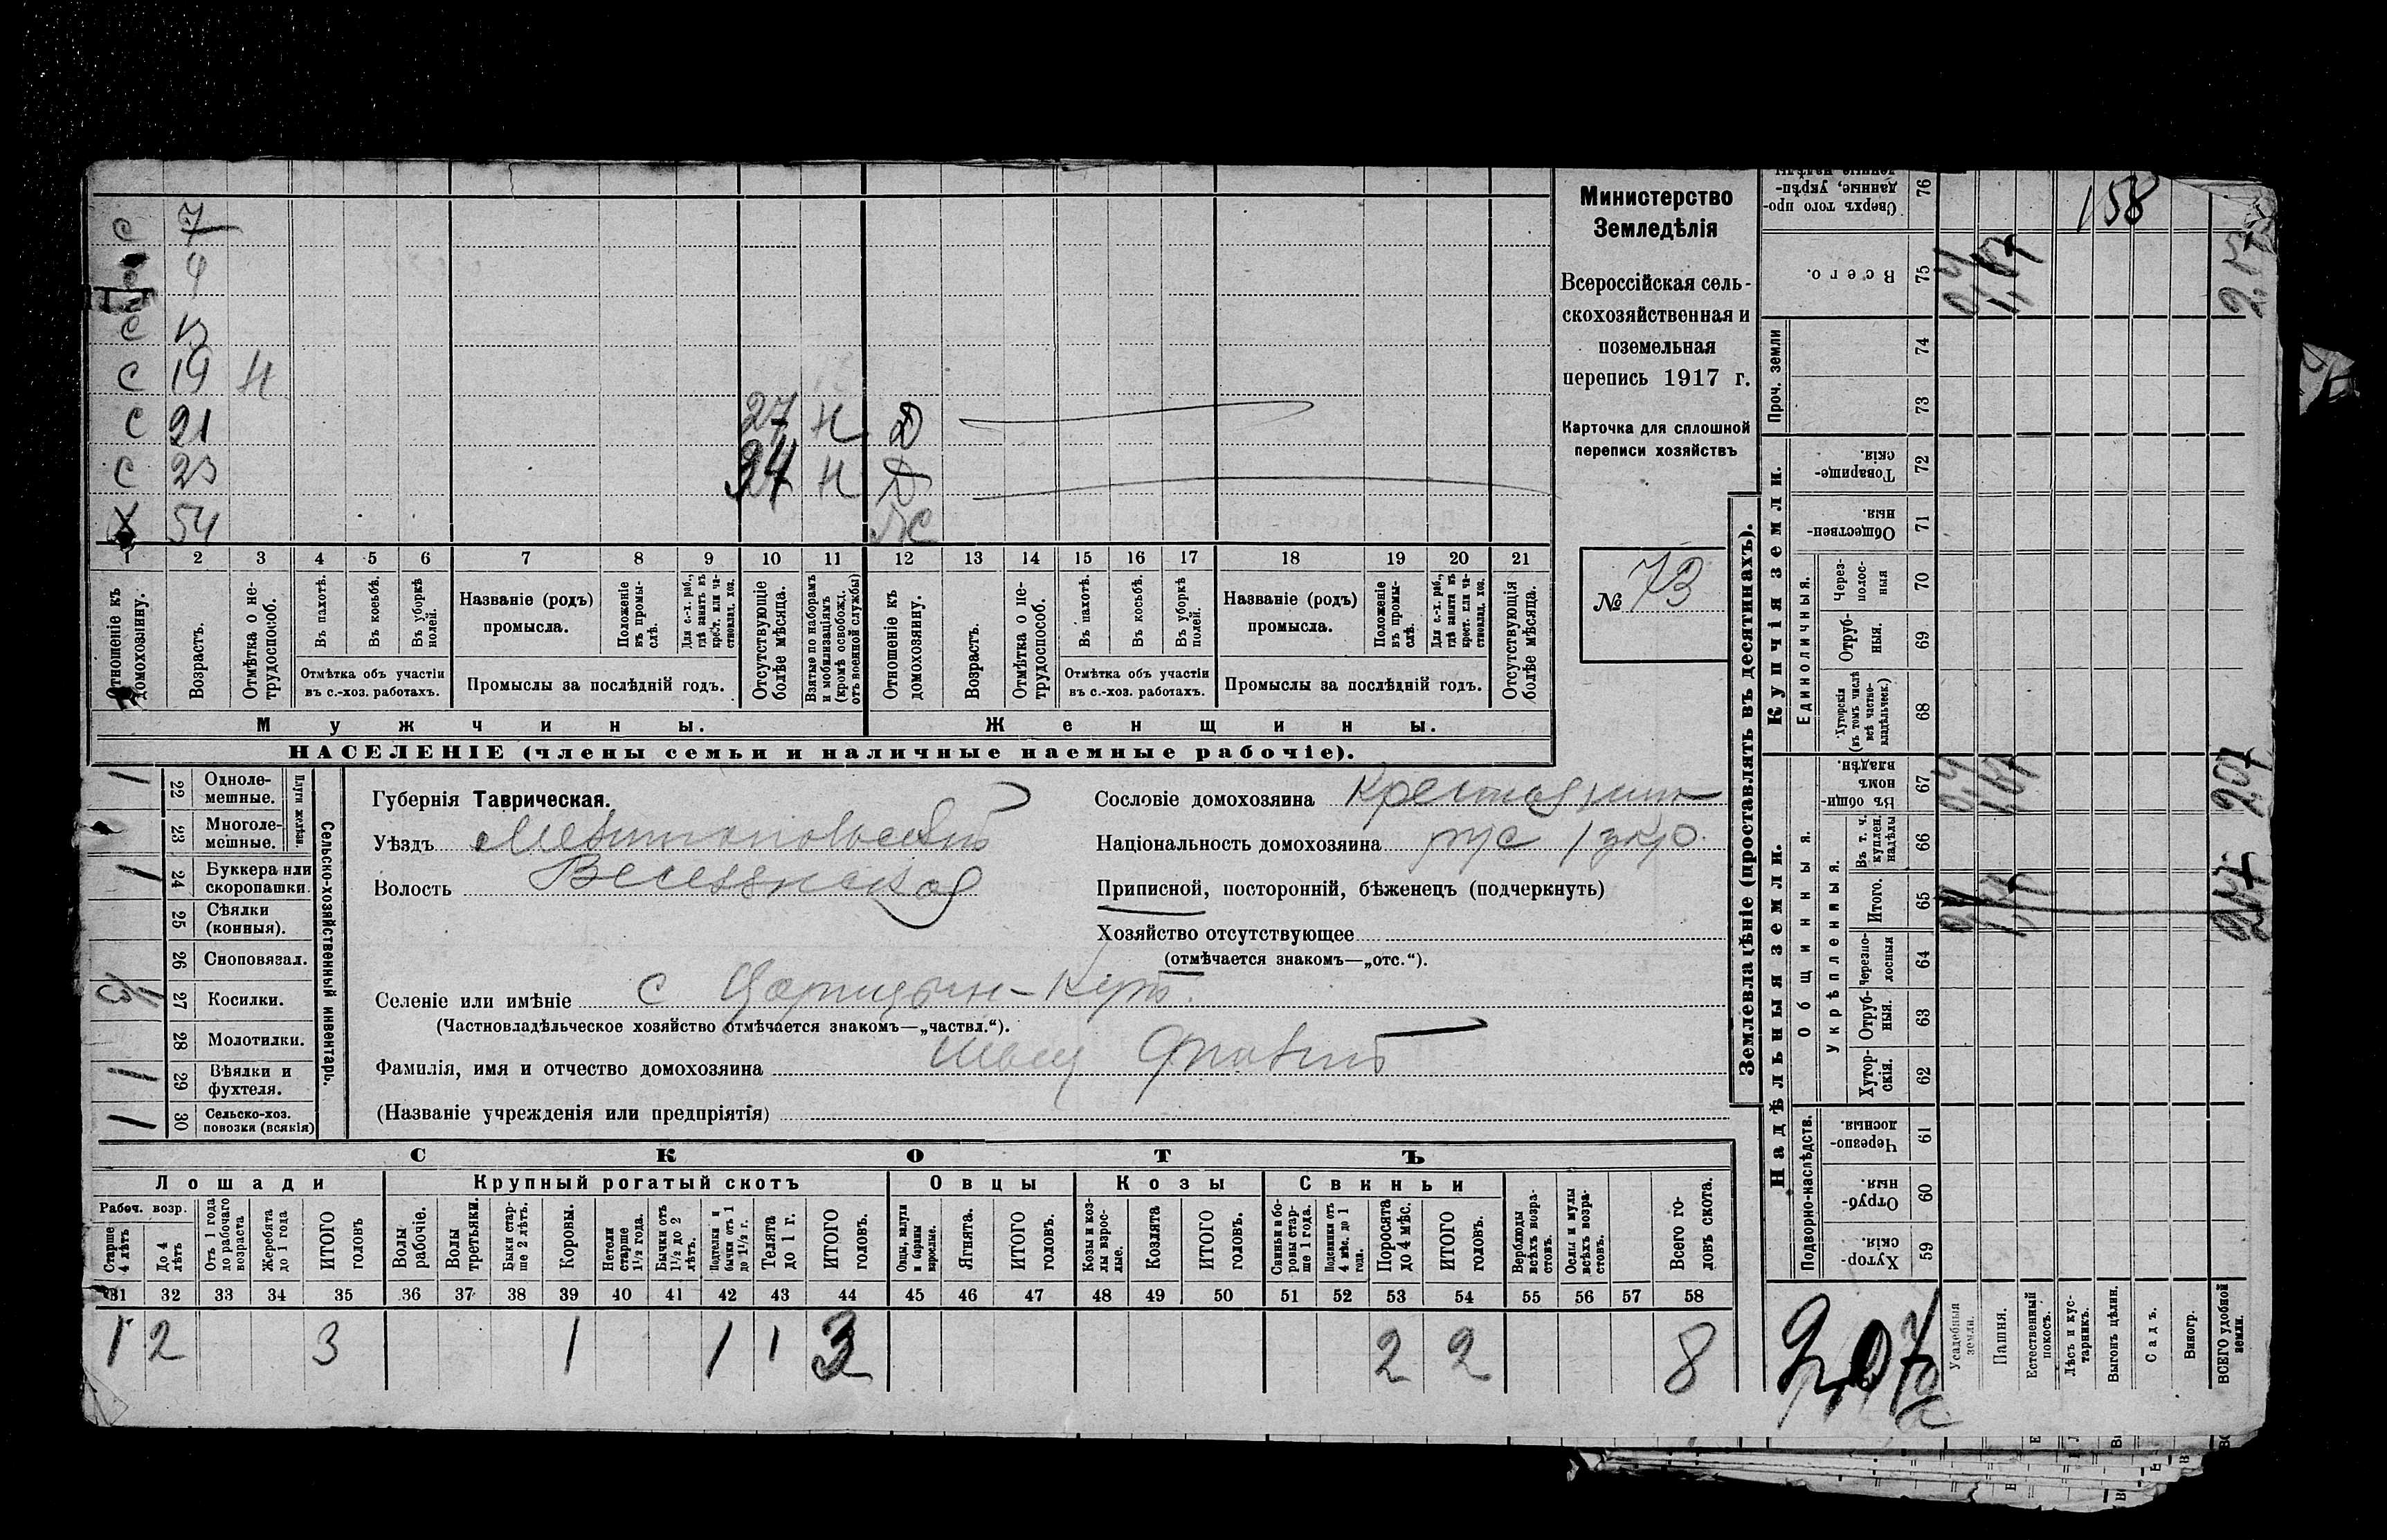 с 7
4
с 13
с 19 Н
с 21 27 Н Д
с 23 24 Н Д
Х 54 ЖС
1 2 3 4 5 6 7 8 9 10 11 12 13 14 15 16 17 18 19 20 21
Отношеніе къ домохозяину.
Возрастъ.
Отмѣтка о нетрудоспособ.
Въ пахотѣ.
Въ косьбѣ.
Въ уборкѣ полей.
Отмѣтка объ участіи
въ с.-хоз. работахъ.
Названіе (родъ)
промысла.
Положеніе въ промыслѣ.
Для с.-х. раб., гдѣ занятъ въ крест. или частновлад. хоз.
Промыслы за послѣдній годъ.
Отсутствующіе болѣе мѣсяца.
Взятые по наборамъ и мобилизаціямъ (кромѣ освобожд. отъ военной службы)
Отношеніе къ домохозяину.
Возрастъ.
Отмѣтка о нетрудоспособ.
Въ пахотѣ.
Въ косьбѣ.
Въ уборкѣ полей.
Отмѣтка объ участіи
въ с.-хоз. работахъ.
Названіе (родъ)
промысла.
Положеніе въ промыслѣ.
Для с.-х. раб., гдѣ занята въ крест. или частновлад. хоз.
Промыслы за послѣдній годъ.
Отсутствующія болѣе мѣсяца.
Мужчины.
Женщины.
НАСЕЛЕНІЕ (члены семьи и наличные наемные рабочіе).
Министерство
Земледѣлія
Всероссійская сель-
скохозяйственная и
поземельная
перепись 1917 г.
Карточка для сплошной
переписи хозяйствъ
№ 73
Сельско-хозяйственный инвентарь.
Плуги желѣзн.
1 22 Одноле-
мешные.
23 Многоле-
мешные.
1 24 Буккера или
скоропашки.
25 Сѣялки
(конныя).
26 Сноповязал.
27 Косилки.
28 Молотилки.
1 29 Вѣялки и
фухтеля.
1 30 Сельско-хоз.
повозки (всякія)
Губернія Таврическая.
Уѣздъ Мелитопольскій
Волость Веселовская
Селеніе или имѣніе с Царицын-Кут.
(Частновладѣльческое хозяйство отмѣчается знакомъ—„частвл.“).
Фамилія, имя и отчество домохозяина
(Названіе учрежденія или предпріятія)
Сословіе домохозяина Крестьянин
Національность домохозяина рус / укр.
Приписной, посторонній, бѣженецъ (подчеркнуть)
Хозяйство отсутствующее
(отмѣчается знакомъ—„отс.“).
СКОТЪ
Лошади
Крупный рогатый скотъ
Овцы
Козы
Свиньи
Рабоч. возр.
Старше 4 лѣтъ
До 4 лѣтъ
Отъ 1 года до рабочаго возраста
Жеребята до 1 года
ИТОГО головъ
Волы рабочіе.
Волы третьяки.
Быки старше 2 лѣтъ.
Коровы.
Нетели старше 1½ года.
Бычки отъ 1½ до 2 лѣтъ.
Подтелки и бычки отъ 1 до 1½ г.
Телята до 1 г.
ИТОГО головъ.
Овцы, валухи и бараны взрослые.
Ягнята.
ИТОГО головъ.
Козы и козлы взрослые.
Козлята
ИТОГО головъ.
Свиньи и боровы старше 1 года.
Подсвинки отъ 4 мѣс. до 1 года.
Поросята до 4 мѣс.
ИТОГО головъ.
Верблюды всѣхъ возрастовъ.
Ослы и мулы всѣхъ возрастовъ.
Всего головъ скота.
31 32 33 34 35 36 37 38 39 40 41 42 43 44 45 46 47 48 49 50 51 52 53 54 55 56 57 58
1 2 3 1 1 1 3 2 2 8
Землевладѣніе (проставлять въ десятинахъ).
Надѣльныя земли.
Купчія земли.
Проч. земли
Подворно-наслѣдств.
Общинныя.
Укрѣпленныя.
Единоличныя.
Сверхъ того проданные, укрѣпленные надѣлы 76
Всего. 75
74
73
Товарищескія. 72
Общественныя. 71
Черезполосныя 70
Отрубныя. 69
Хуторскія (въ томъ числѣ всѣ частновладѣльческ.) 68
Въ общиномъ владѣн. 67
Въ т. ч. куплен. надѣлы 66
Итого. 65
Черезполосныя 64
Отрубныя. 63
Хуторскія. 62
Черезполосныя. 61
Отрубныя. 60
Хуторскія. 59
Усадебныя земли.
Пашня.
Естественный покосъ.
Лѣсъ и кустарникъ.
Выгонъ цѣлин.
Садъ.
Виногр.
ВСЕГО удобной земли.
158
2,07